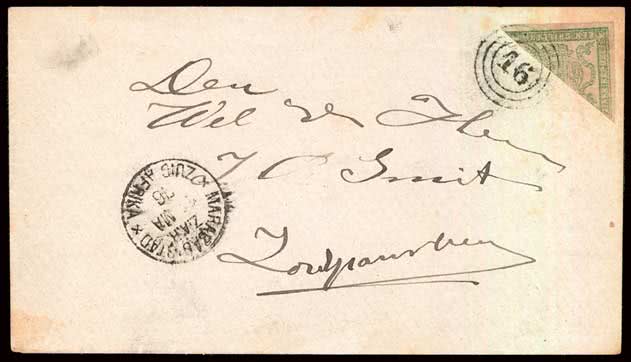 EEN SHILLING
16
Den
Wel Heer
J C Smit
Zoutpansberg
MARABASTAD × ZUID AFRIKA
MA
Z.A.R.